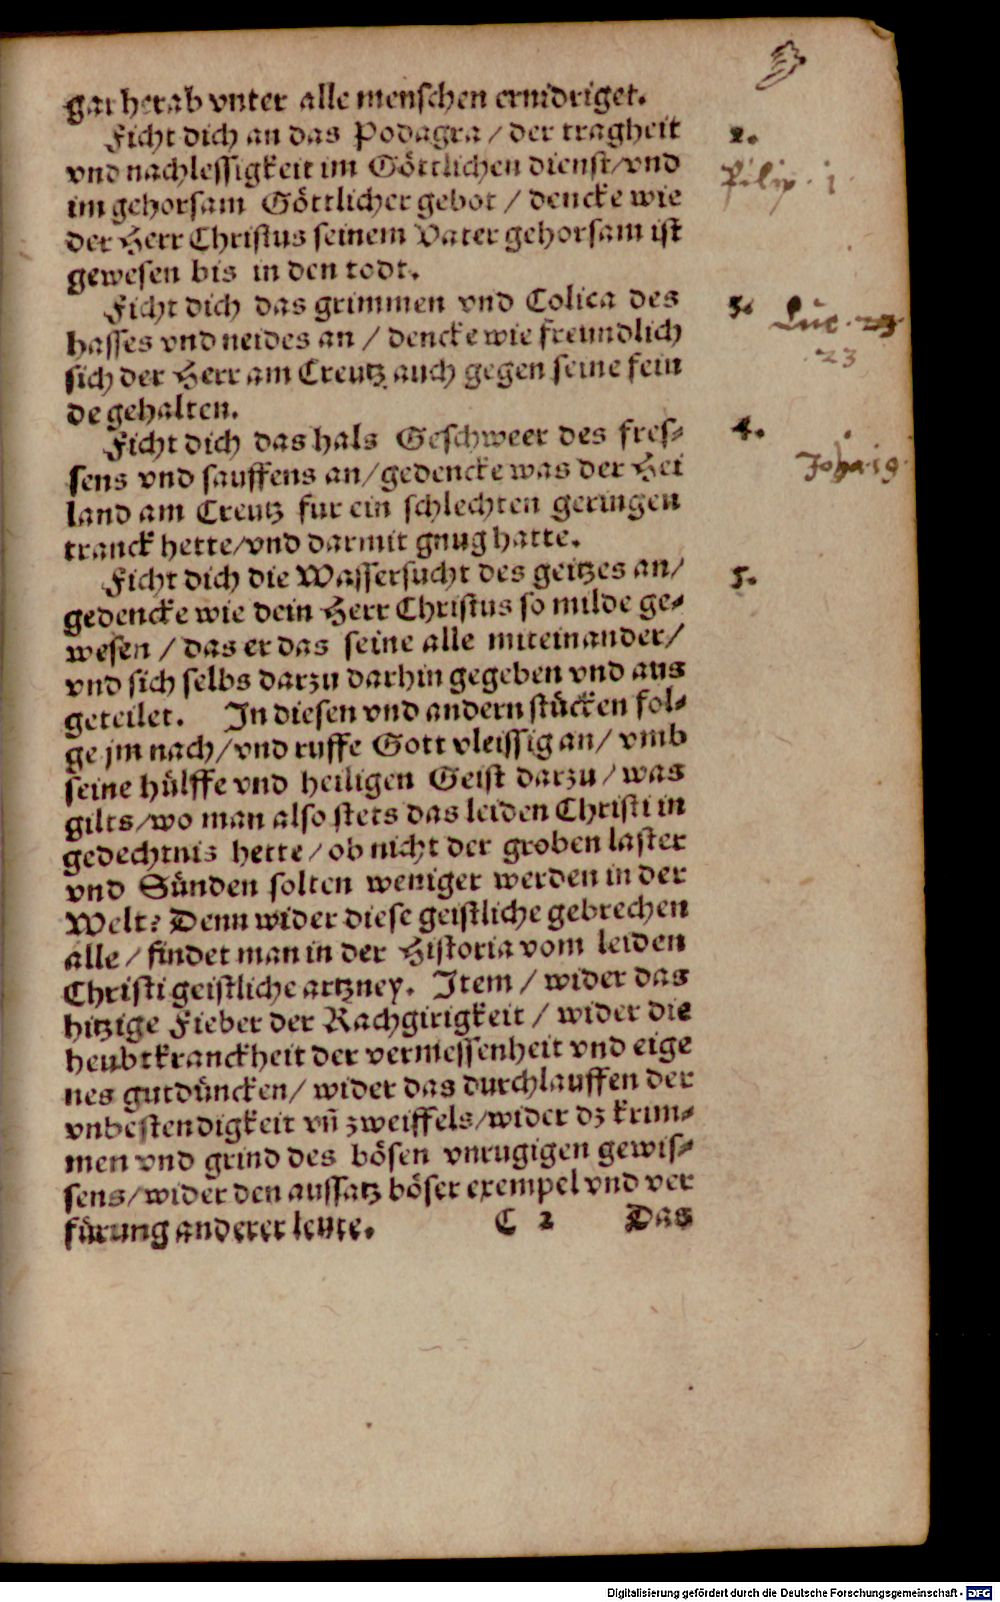 gar herab vnter alle menschen ernidriget.
Ficht dich an das Podagra / der tragheit
vnd nachlessigkeit im Göttlichen dienst/vnd
im gehorsam Göttlicher gebot / dencke wie
der Herr Christus seinem Vater gehorsam ist
gewesen bis in den todt.
Ficht dich das grimmen vnd Colica des
hasses vnd neides an / dencke wie freundlich
sich der Herr am Creutz auch gegen seine fein
de gehalten.
Ficht dich das hals Geschweer des fres-
sens vnd sauffens an/gedencke was der Hei
land am Creutz fur ein schlechten geringen
tranck hette/vnd darmit gnug hatte.
Ficht dich die Wassersucht des geitzes an/
gedencke wie dein Herr Christus so milde ge-
wesen / das er das seine alle miteinander/
vnd sich selbs darzu darhin gegeben vnd aus
geteilet. In diesen vnd andern stücken fol-
ge jm nach/vnd ruffe Gott vleissig an/ vmb
seine hülffe vnd heiligen Geist darzu/was
gilts/wo man also stets das leiden Christi in
gedechtnis hette/ob nicht der groben laster
vnd Sünden solten weniger werden in der
Welt? Denn wider diese geistliche gebrechen
alle / findet man in der Historia vom leiden
Christi geistliche artzney. Item / wider das
hitzige Fieber der Rachgirigkeit / wider die
heubtkranckheit der vermessenheit vnd eige
nes gutdüncken/ wider das durchlauffen der
vnbestendigkeit vñ zweiffels/wider dz krim-
men vnd grind des bösen vnrugigen gewis-
sens/wider den aussatz böser exempel vnd ver
fürung anderer leute.
C 2 Das
2.
Pilip. 1
3. Luc. 23
23
4.
Joha. 19
5.
Digitalisierung gefördert durch die Deutsche Forschungsgemeinschaft - DFG